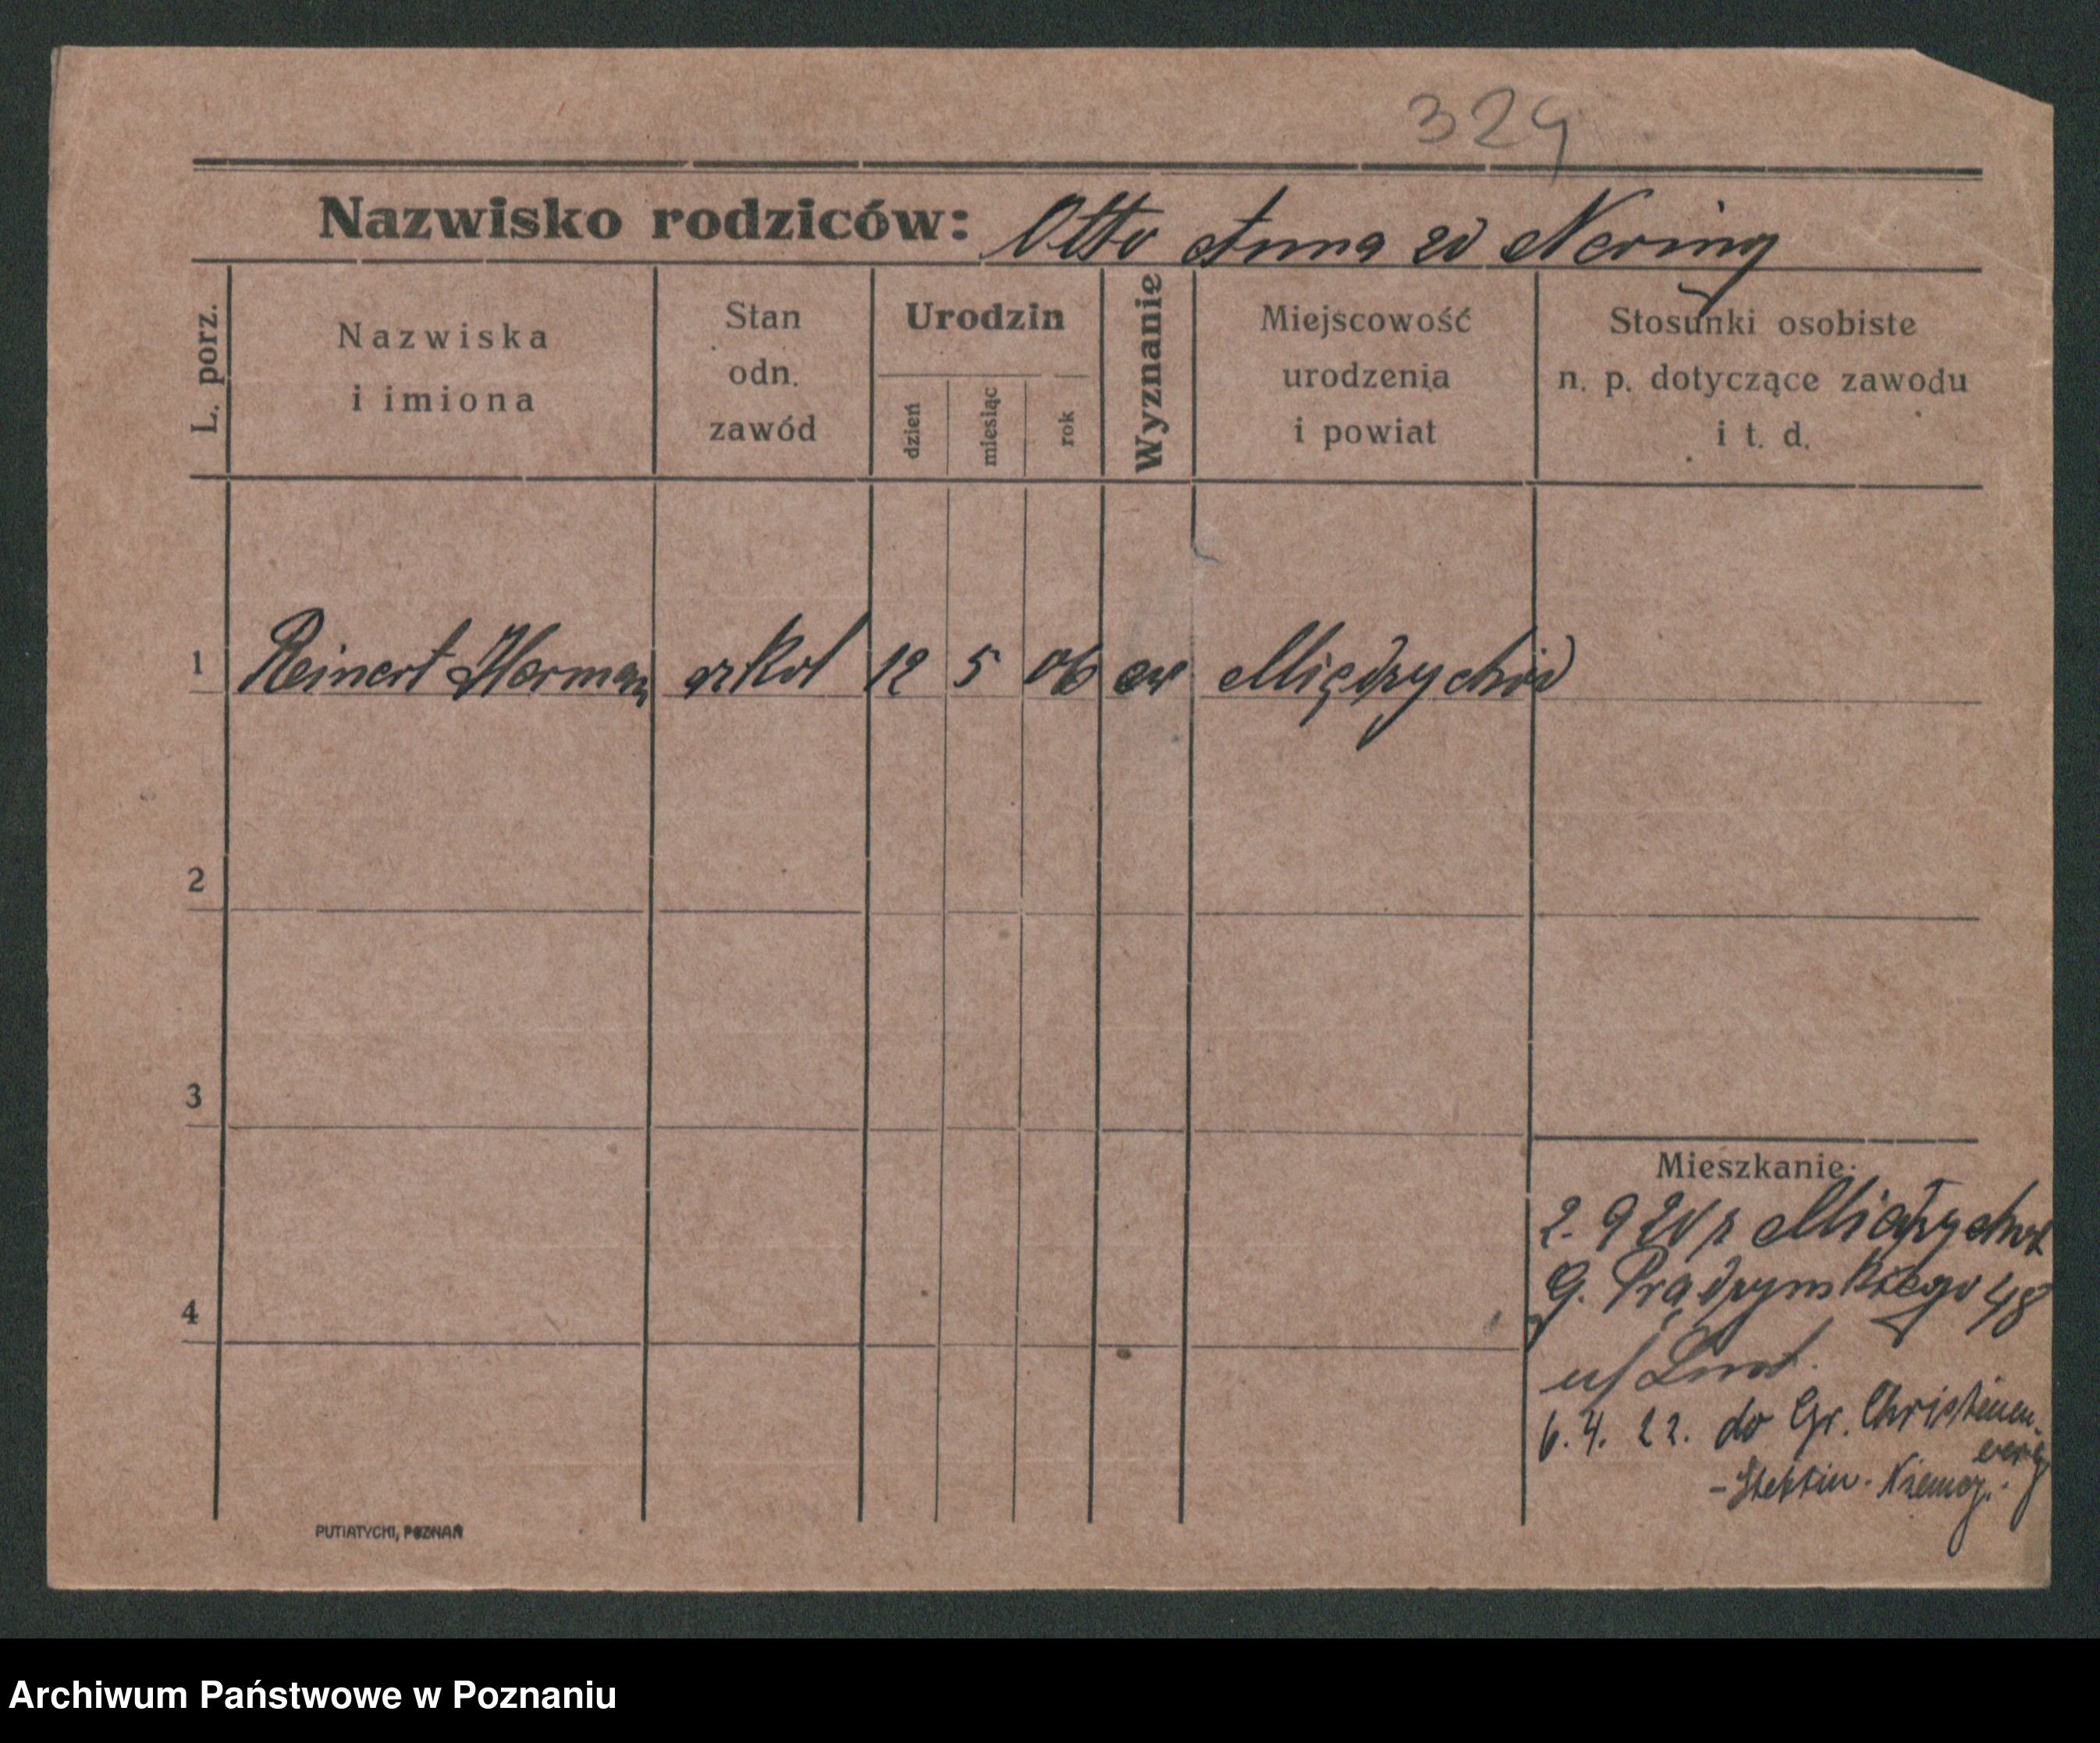 329
Nazwisko rodziców: Otto Anna zd Nering
L. porz.
Nazwiska
i imiona
Stan
odn.
zawód
Urodzin
dzień
miesiąc
rok
Wyznanie
Miejscowość
urodzenia
i powiat
Stosunki osobiste
n. p. dotyczące zawodu
i t. d.
1 Reinert Herman szkol 12 5 06 ew Międzychód
2
3
Mieszkanie:
2. 9 20 z Międzychod
G. Prądzynskiego 48
4
u/
6. 4. 22. do Gr. Christinen-
berg
- Stettin. Niemcy.
PUTIATYCKI, POZNAŃ
Archiwum Państwowe w Poznaniu